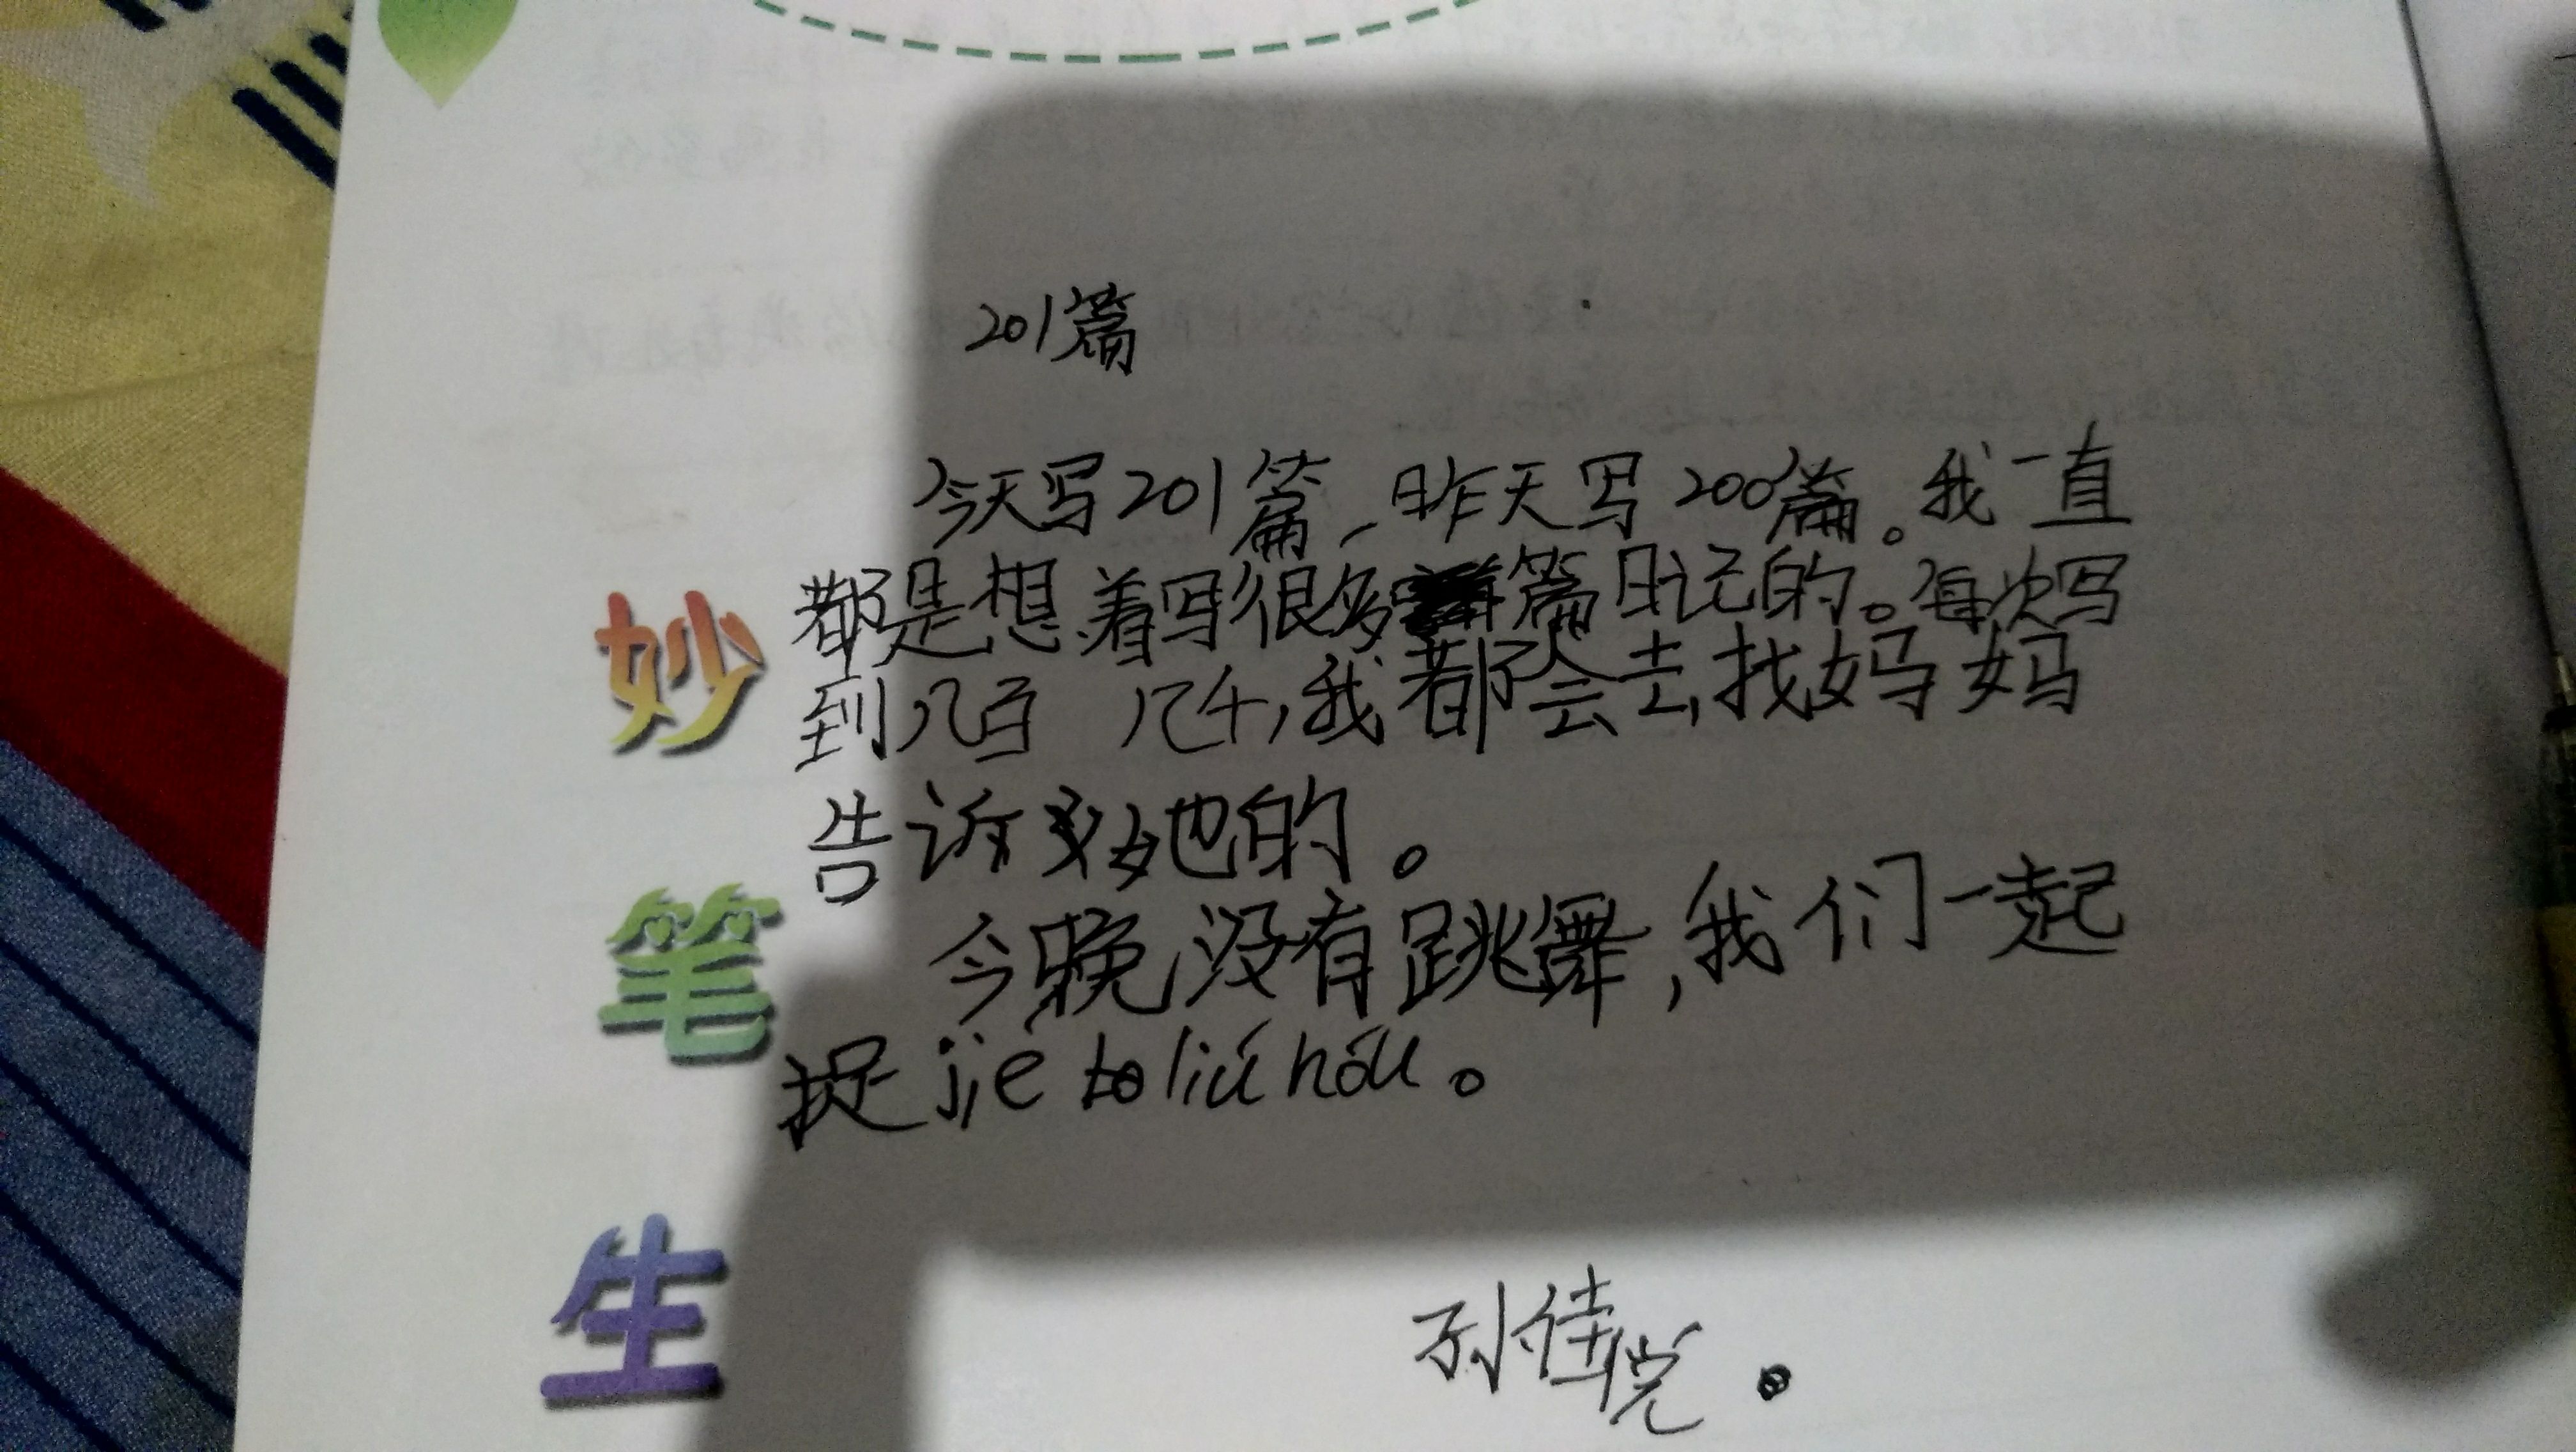 201篇
今天写201篇,昨天写200篇。我一直
都是想着写很多篇日记的。每次写
到几百 几十,我都会去找妈妈
告诉她的。
今晚没有跳舞,我们一起
捉jiē to liú hóu。
孙佳
妙
笔
生